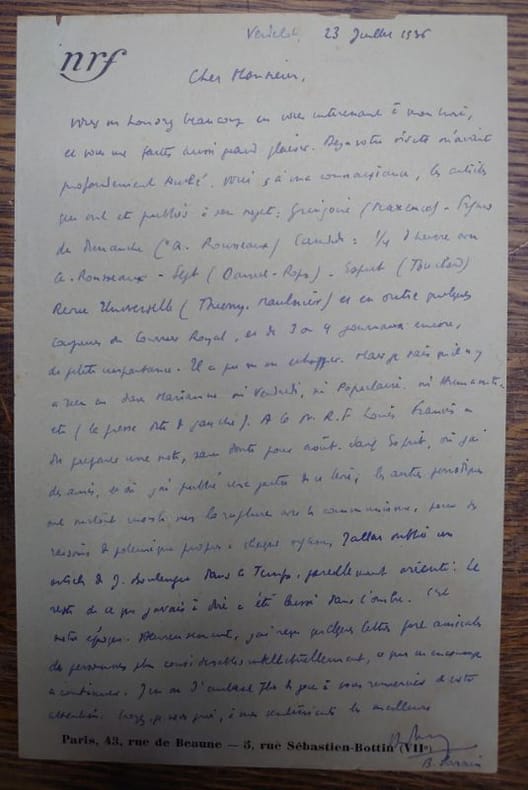 nrf
23 Juillet 1936
Cher Monsieur,
Vous m'honorez beaucoup en vous intéressant à mon livre,
et vous me faites aussi grand plaisir. Déjà votre visite m'avait
profondément touché. Voici, à ma connaissance, les articles
qui ont été publiés à son sujet : Gringoire (Maxence) - Figaro
du Dimanche (A. Rousseaux) Candide : 1/4 d'heure avec
A. Rousseaux - Sept (Daniel-Rops) - Esprit (Touchard)
Revue Universelle (Thierry Maulnier) et en outre quelques
coupures du Courrier Royal, et de 3 ou 4 journaux encore,
de petite importance. Il a pu m'en échapper. Mais je sais qu'il n'y
a rien eu dans Marianne ni Vendredi, ni Populaire, ni Humanité
etc (la presse dite de gauche). A la N.R.F. Louis Francis a
dû préparer une note, sans doute pour août. Sauf Esprit, où j'ai
des amis, et où j'ai publié une partie de ce livre, les autres périodiques
ont surtout insisté sur la rupture avec le communisme, pour des
raisons de polémique propres à chaque organe. J'allais oublier un
article de J. Boulenger dans le Temps, pareillement orienté. Le
reste de ce que j'avais à dire a été laissé dans l'ombre. C'est
notre époque. Heureusement, j'ai reçu quelques lettres fort amicales
de personnes plus considérables intellectuellement, ce qui m'encourage
à continuer. J'en ai d'autant plus de joie à vous remercier de votre
attention. Croyez, je vous prie, à mes sentiments les meilleurs
B. Parain
Paris, 43, rue de Beaune — 5, rue Sébastien-Bottin (VIIe)